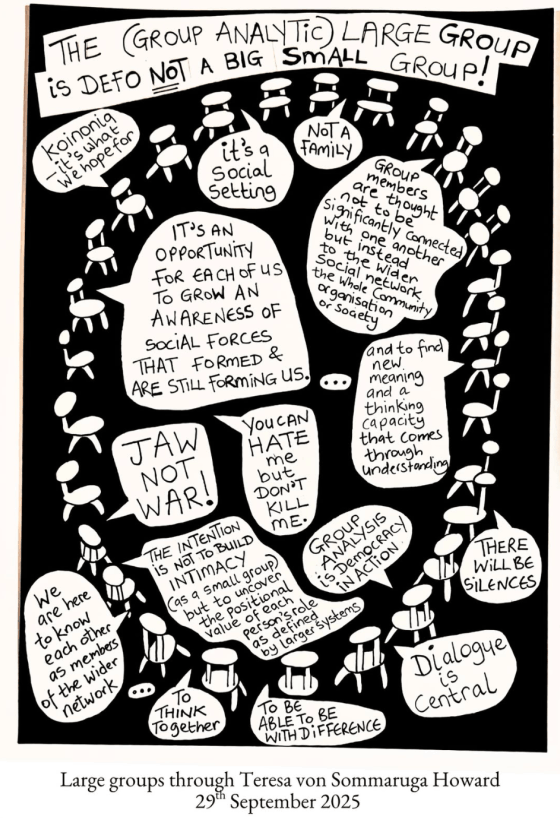 THE (GROUP ANALYTIC) LARGE GROUP
is DEFO NOT A BIG SMALL GROUP!
Koinonia
– it's what
we hope for
it's a
Social
Setting
NOT A
FAMILY
GROUP
members
are thought
not to be
significantly connected
with one another
but instead
to the wider
Social network
the whole Community
organisation
or society
IT'S AN
OPPORTUNITY
FOR EACH OF US
TO GROW AN
AWARENESS OF
SOCIAL FORCES
THAT FORMED &
ARE STILL FORMING US.
...
and to find
new
meaning
and a
thinking
capacity
that comes
through
understanding
JAW
NOT
WAR!
YOU CAN
HATE
me
but
DON'T
KILL
ME.
THE INTENTION
is NOT TO BUILD
INTIMACY
(as a small group)
but to uncover
the positional
value of each
person's role
as defined
by larger systems
GROUP
ANALYSIS
is DEMOCRACY
IN ACTION.
THERE
WILL BE
SILENCES
We
are here
to know
each other
as members
of the wider
network
...
TO
THINK
Together
TO BE
ABLE TO BE
WITH DIFFERENCE
Dialogue
is
Central
Large groups through Teresa von Sommaruga Howard
29th September 2025